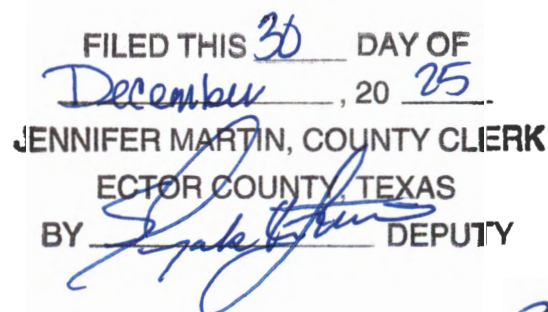 FILED THIS 30 DAY OF
December, 20 25.
JENNIFER MARTIN, COUNTY CLERK
ECTOR COUNTY, TEXAS
BY DEPUTY